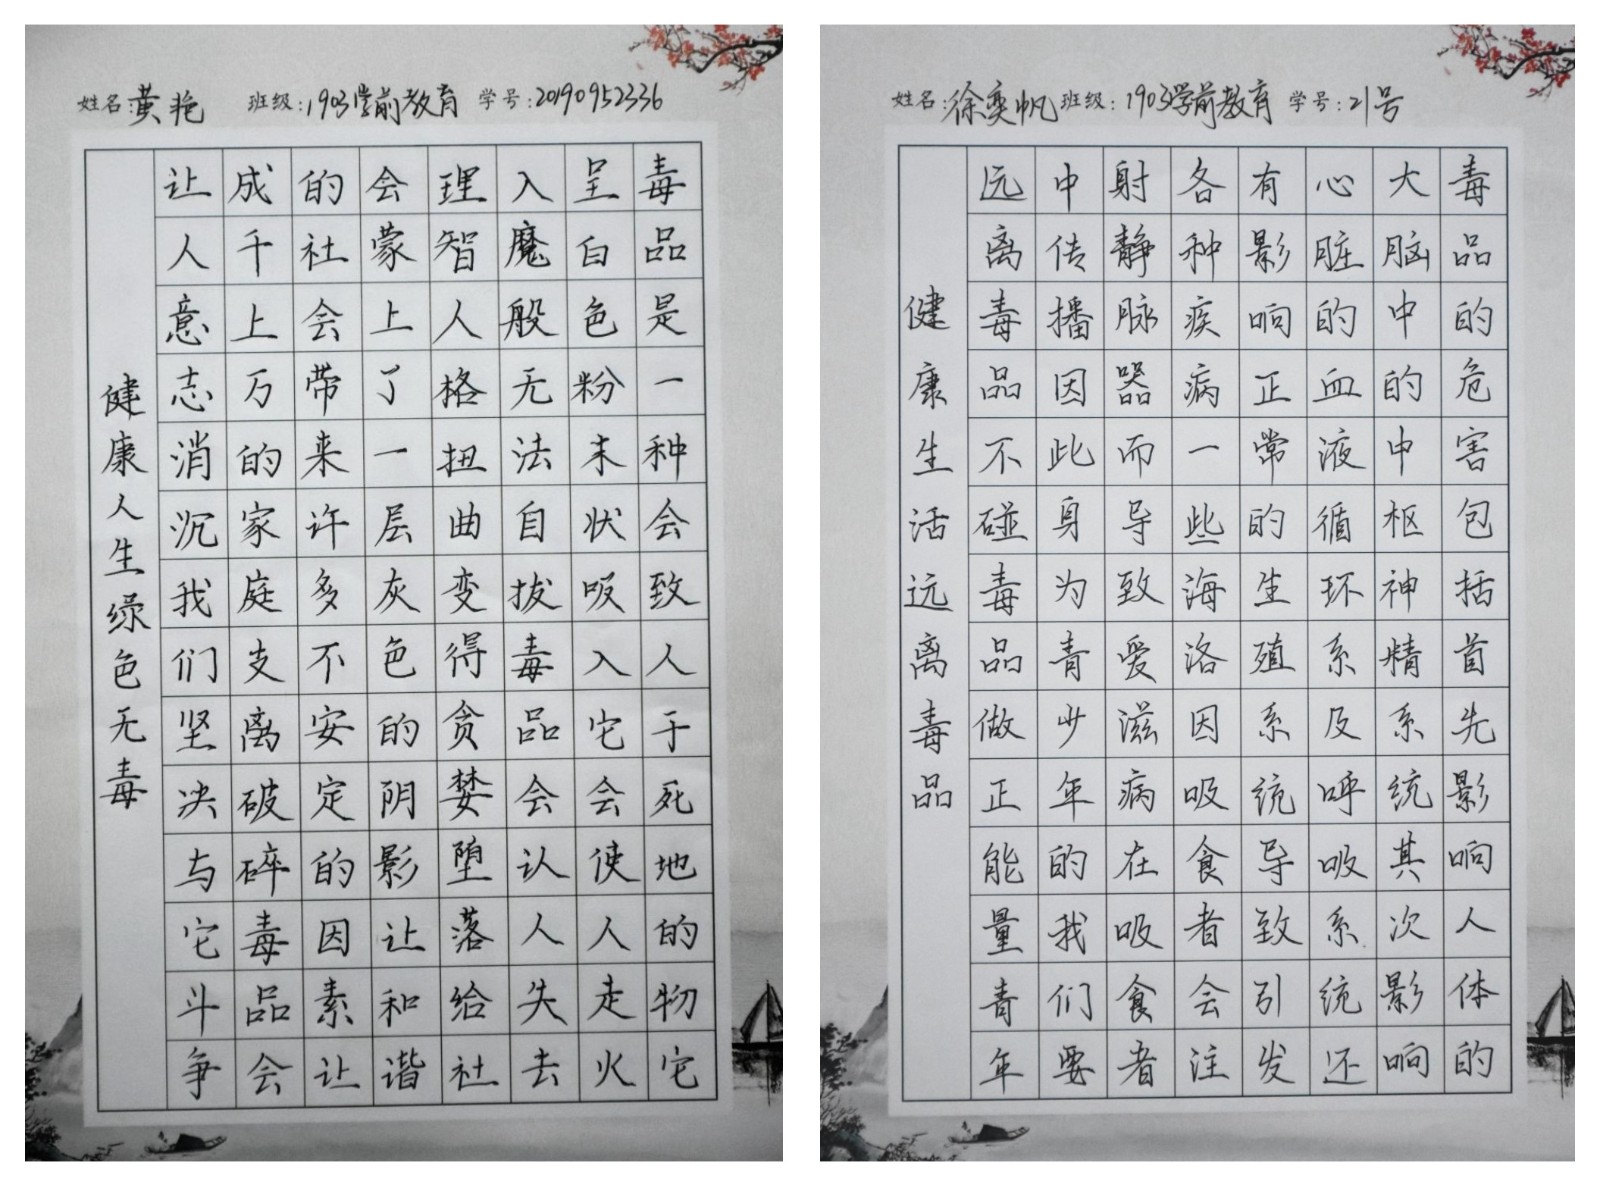 姓名:黄艳 班级:1903学前教育 学号:20190952336
毒品是一种会致人于死地的物它
呈白色粉末状吸入它会使人走火
入魔般无法自拔毒品会认人失去
理智人格扭曲变得贪婪堕落给社
会蒙上了一层灰色的阴影让和谐
的社会带来许多不安定的因素让
成千上万的家庭支离破碎毒品会
让人意志消沉我们坚决与它斗争
健康人生绿色无毒
姓名:徐奕帆 班级:1903学前教育 学号:21号
毒品的危害包括首先影响人体的
大脑中的中枢神精系统其次影响
心脏的血液循环系及呼吸系统还
有影响正常的生殖系统导致引发
各种疾病一些海洛因吸食者会注
射静脉器而导致爱滋病在吸食者
中传播因此身为青少年的我们要
远离毒品不碰毒品做正能量青年
健康生活远离毒品